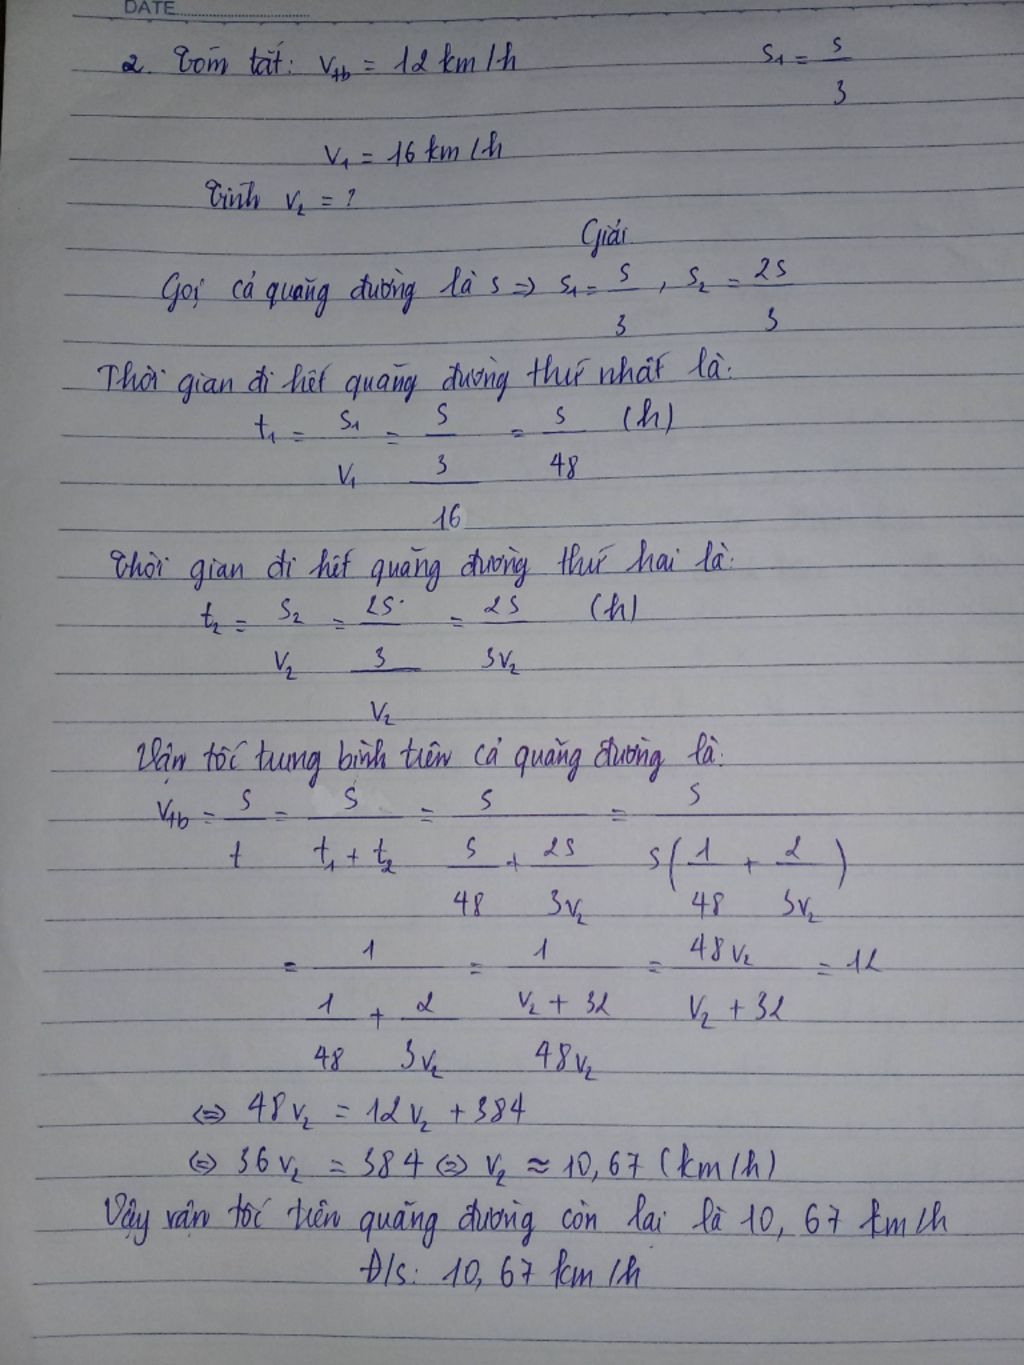 DATE
2. Tóm tắt: Vtb = 12 km/h S1 = S/3
V1 = 16 km/h
Tính V2 = ?
Giải
Gọi cả quãng đường là S => S1 = S/3, S2 = 2S/3
Thời gian đi hết quãng đường thứ nhất là:
t1 = S1/V1 = (S/3)/16 = S/48 (h)
Thời gian đi hết quãng đường thứ hai là:
t2 = S2/V2 = (2S/3)/V2 = 2S/3V2 (h)
Vận tốc trung bình trên cả quãng đường là:
Vtb = S/t = S/(t1 + t2) = S/(S/48 + 2S/3V2) = S/(S(1/48 + 2/3V2))
= 1/(1/48 + 2/3V2) = 1/((V2 + 32)/48V2) = 48V2/(V2 + 32) = 12
<=> 48V2 = 12V2 + 384
<=> 36V2 = 384 <=> V2 ≈ 10,67 (km/h)
Vậy vận tốc trên quãng đường còn lại là 10,67 km/h
Đ/s: 10,67 km/h